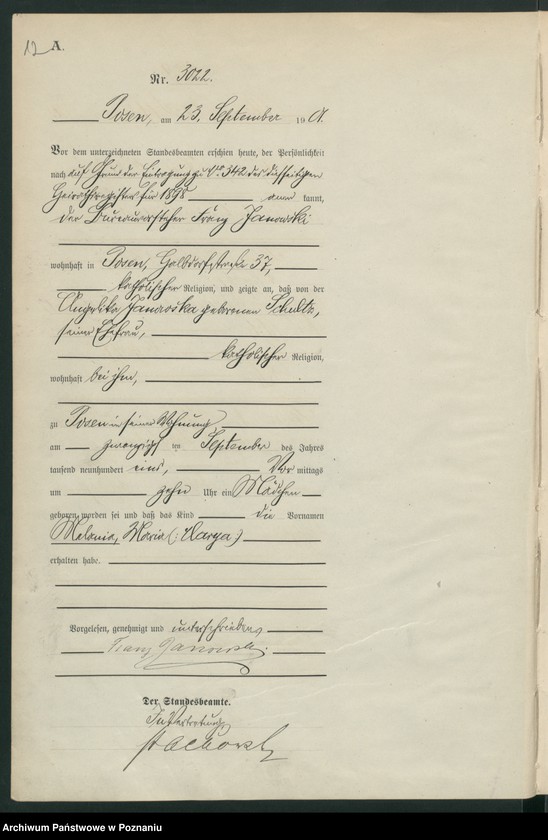 12 A.
Nr. 3022.
Posen, am 23. September 1901.
Vor dem unterzeichneten Standesbeamten erschien heute, der Persönlichkeit
nach auf Grund der Eintragung zu No 342 des diesseitigen
Heirathsregisters für 1898 anerkannt,
der Bureauvorsteher Franz Janowski
wohnhaft in Posen, 37,
katholischer Religion, und zeigte an, daß von der
Angelika Janowska geborenen Schultz,
seiner Ehefrau,
katholischer Religion,
wohnhaft bei ihm,
zu Posen in seiner Wohnung,
am zwanzigsten September des Jahres
tausend neunhundert eins, Vormittags
um zehn Uhr ein Mädchen
geboren worden sei und daß das Kind die Vornamen
Melania, Maria (: Marya)
erhalten habe.
Vorgelesen, genehmigt und unterschrieben
Franz Janowski.
Der Standesbeamte.
In Vertretung
Archiwum Państwowe w Poznaniu